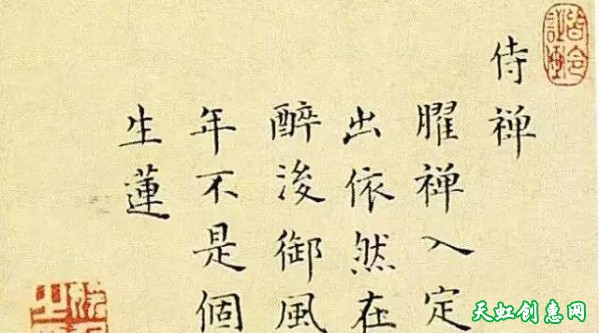 侍禅
臞禅入定
出依然在
醉浚御风
年不是個
生蓮
天虹创意网